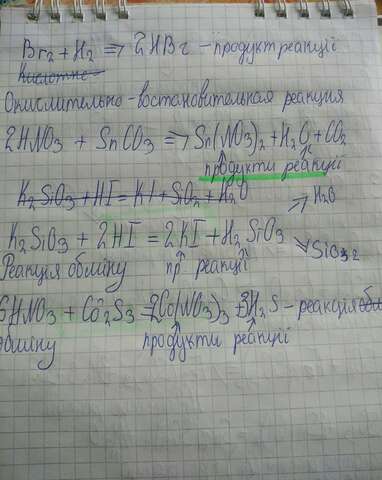 Br₂ + H₂ => 2HBr - продукт реакції
Кислотне
Окислительно - востановительная реакция
2HNO₃ + SnCO₃ => Sn(NO₃)₂ + H₂O + CO₂
продукти реакції
K₂SiO₃ + HI = KI + SiO₂ + H₂O
H₂O
K₂SiO₃ + 2HI = 2KI + H₂SiO₃
Реакція обміну пр. реакції
6HNO₃ + Co₂S₃ = 2Co(NO₃)₃ + 3H₂S - реакція
обміну продукти реакції